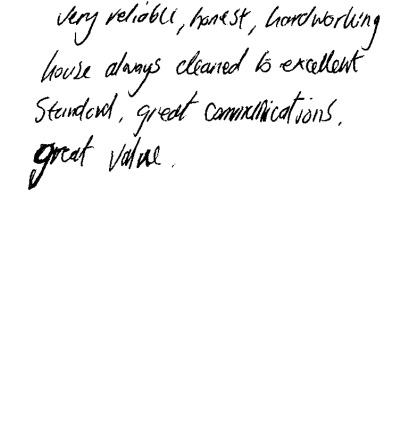 very reliable, honest, hardworking
house always cleaned to excellent
Standard, great communications.
great value.